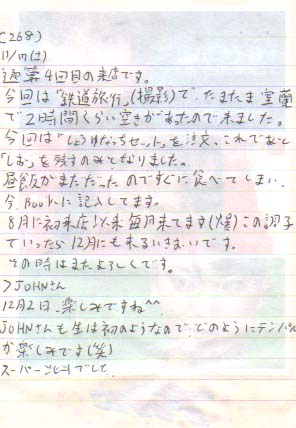 (268)
11/17(土)
第4回目の来店です。
今回は「鉄道旅行」(撮影)で、たまたま室蘭
で2時間くらい空きがあったので来ました。
今回は「しょうゆなっちセット」を注文、これであと
「しお」を残すのみとなりました。
昼飯がまだだったのですぐに食べてしまい、
今、Bookに記入してます。
8月に初来店以来毎月来てます(爆)この調子
でいったら12月にも来るいきおいです。
その時はまたよろしくです。
>JOHNさん
12月2日、楽しみですね^^
JOHNさんも生は初のようなので、どのようにテンパルか
楽しみです(笑)
スーパーひだでした